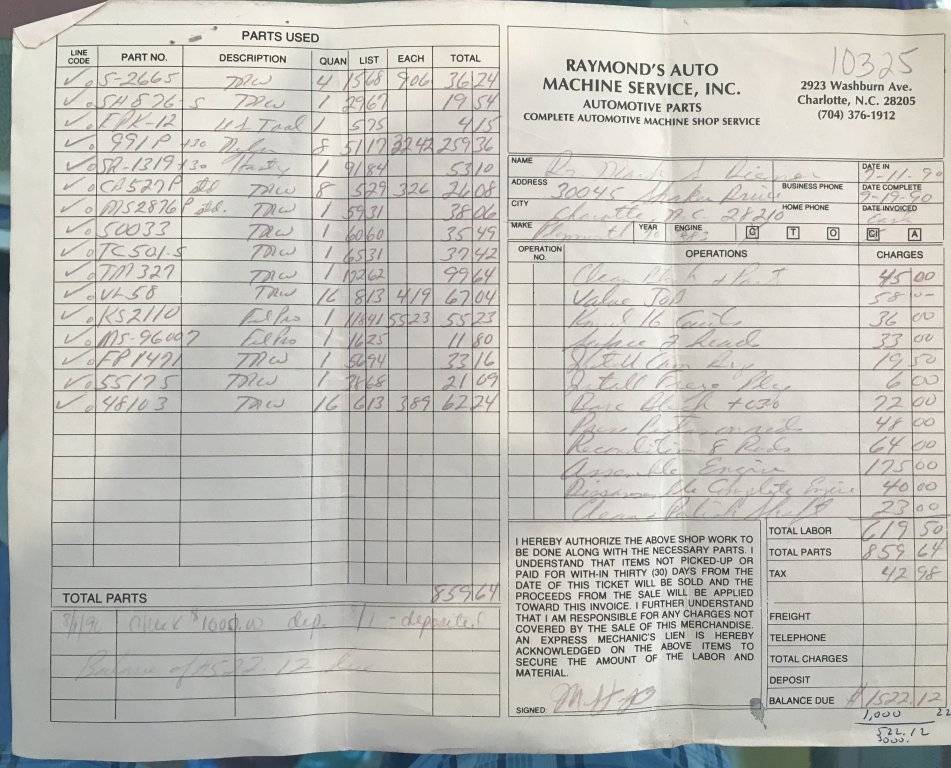 PARTS USED
LINE CODE PART NO. DESCRIPTION QUAN LIST EACH TOTAL
S-2665 TRW 4 1568 906 36 24
SH 876-S TRW 1 2967 19 54
EPK-12 US Tool 1 575 4 15
991P +30 8 5117 3242 259 36
SR-1319 +30 Hasty 1 9184 53 10
CB527P Std TRW 8 529 326 26 08
MS2876P Std. TRW 1 5931 38 06
50033 TRW 1 6060 35 49
TC501-S TRW 1 6531 37 42
TM 327 TRW 1 17262 99 64
VL58 TRW 16 813 419 67 04
KS2110 FelPro 1 11841 5523 55 23
MS-96007 FelPro 1 1625 11 80
FP1471 TRW 1 5694 33 16
55175 TRW 1 3868 21 09
48103 TRW 16 613 389 62 24
TOTAL PARTS 859.64
Check $1000.00 dep. deposited
Balance of $522.12 due
10325
RAYMOND'S AUTO
MACHINE SERVICE, INC.
AUTOMOTIVE PARTS
COMPLETE AUTOMOTIVE MACHINE SHOP SERVICE
2923 Washburn Ave.
Charlotte, N.C. 28205
(704) 376-1912
NAME Dr. Mark S DATE IN 7-11-90
ADDRESS 3004 Shaker Drive BUSINESS PHONE DATE COMPLETE 9-19-90
CITY Charlotte, N.C. 28210 HOME PHONE DATE INVOICED Cash
MAKE Plymouth YEAR 70 ENGINE 383 G T O CI A
OPERATION NO. OPERATIONS CHARGES
Clean Block + Part 45 00
Valve Job 58 --
Knurl 16 Guides 36 00
Surface 2 Heads 33 00
Install Cam Brg 19 50
Install Freeze Plug 6 00
Bore Block +030 72 00
Press Pistons on rods 48 00
Recondition 8 Rods 64 00
Assemble Engine 175 00
Disassemble Complete Engine 40 00
Clean & Polish Shaft 23 00
I HEREBY AUTHORIZE THE ABOVE SHOP WORK TO
BE DONE ALONG WITH THE NECESSARY PARTS. I
UNDERSTAND THAT ITEMS NOT PICKED-UP OR
PAID FOR WITH-IN THIRTY (30) DAYS FROM THE
DATE OF THIS TICKET WILL BE SOLD AND THE
PROCEEDS FROM THE SALE WILL BE APPLIED
TOWARD THIS INVOICE. I FURTHER UNDERSTAND
THAT I AM RESPONSIBLE FOR ANY CHARGES NOT
COVERED BY THE SALE OF THIS MERCHANDISE.
AN EXPRESS MECHANIC'S LIEN IS HEREBY
ACKNOWLEDGED ON THE ABOVE ITEMS TO
SECURE THE AMOUNT OF THE LABOR AND
MATERIAL.
SIGNED:
TOTAL LABOR 619 50
TOTAL PARTS 859 64
TAX 42 98
FREIGHT
TELEPHONE
TOTAL CHARGES
DEPOSIT
BALANCE DUE $1522.12
1,000
522.12